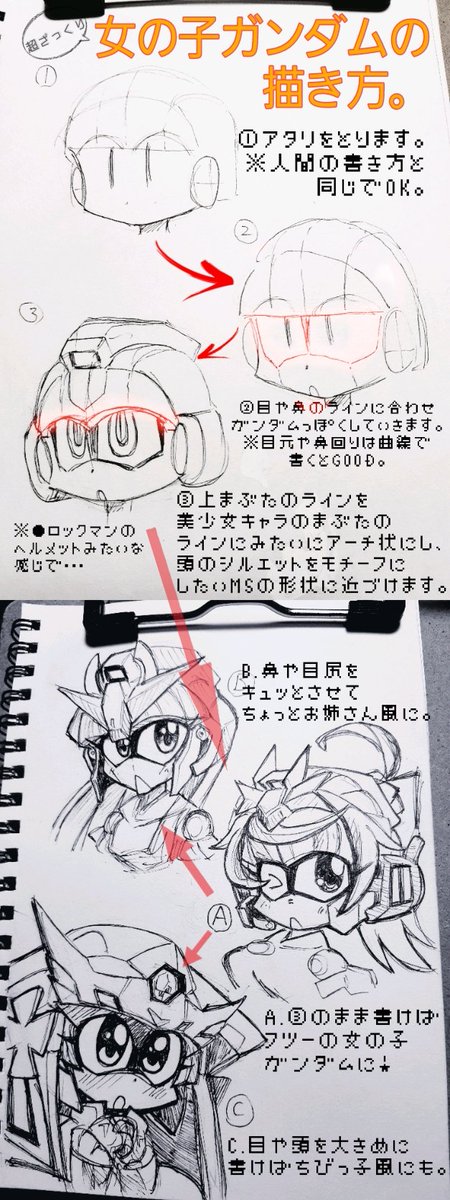 超ざっくり
女の子ガンダムの
描き方。
①
①アタリをとります。
※人間の書き方と
同じでOK。
②
③
②目や鼻のラインに合わせ
ガンダムっぽくしていきます。
※目元や鼻回りは曲線で
書くとGOOD。
③上まぶたのラインを
美少女キャラのまぶたの
ラインにみたいにアーチ状にし、
頭のシルエットをモチーフに
したいMSの形状に近づけます。
※●ロックマンの
ヘルメットみたいな
感じで・・・
B.鼻や目尻を
キュッとさせて
ちょっとお姉さん風に。
A
A.③のまま書けば
フツーの女の子
ガンダムに★
C
C.目や頭を大きめに
書けばちびっ子風にも。